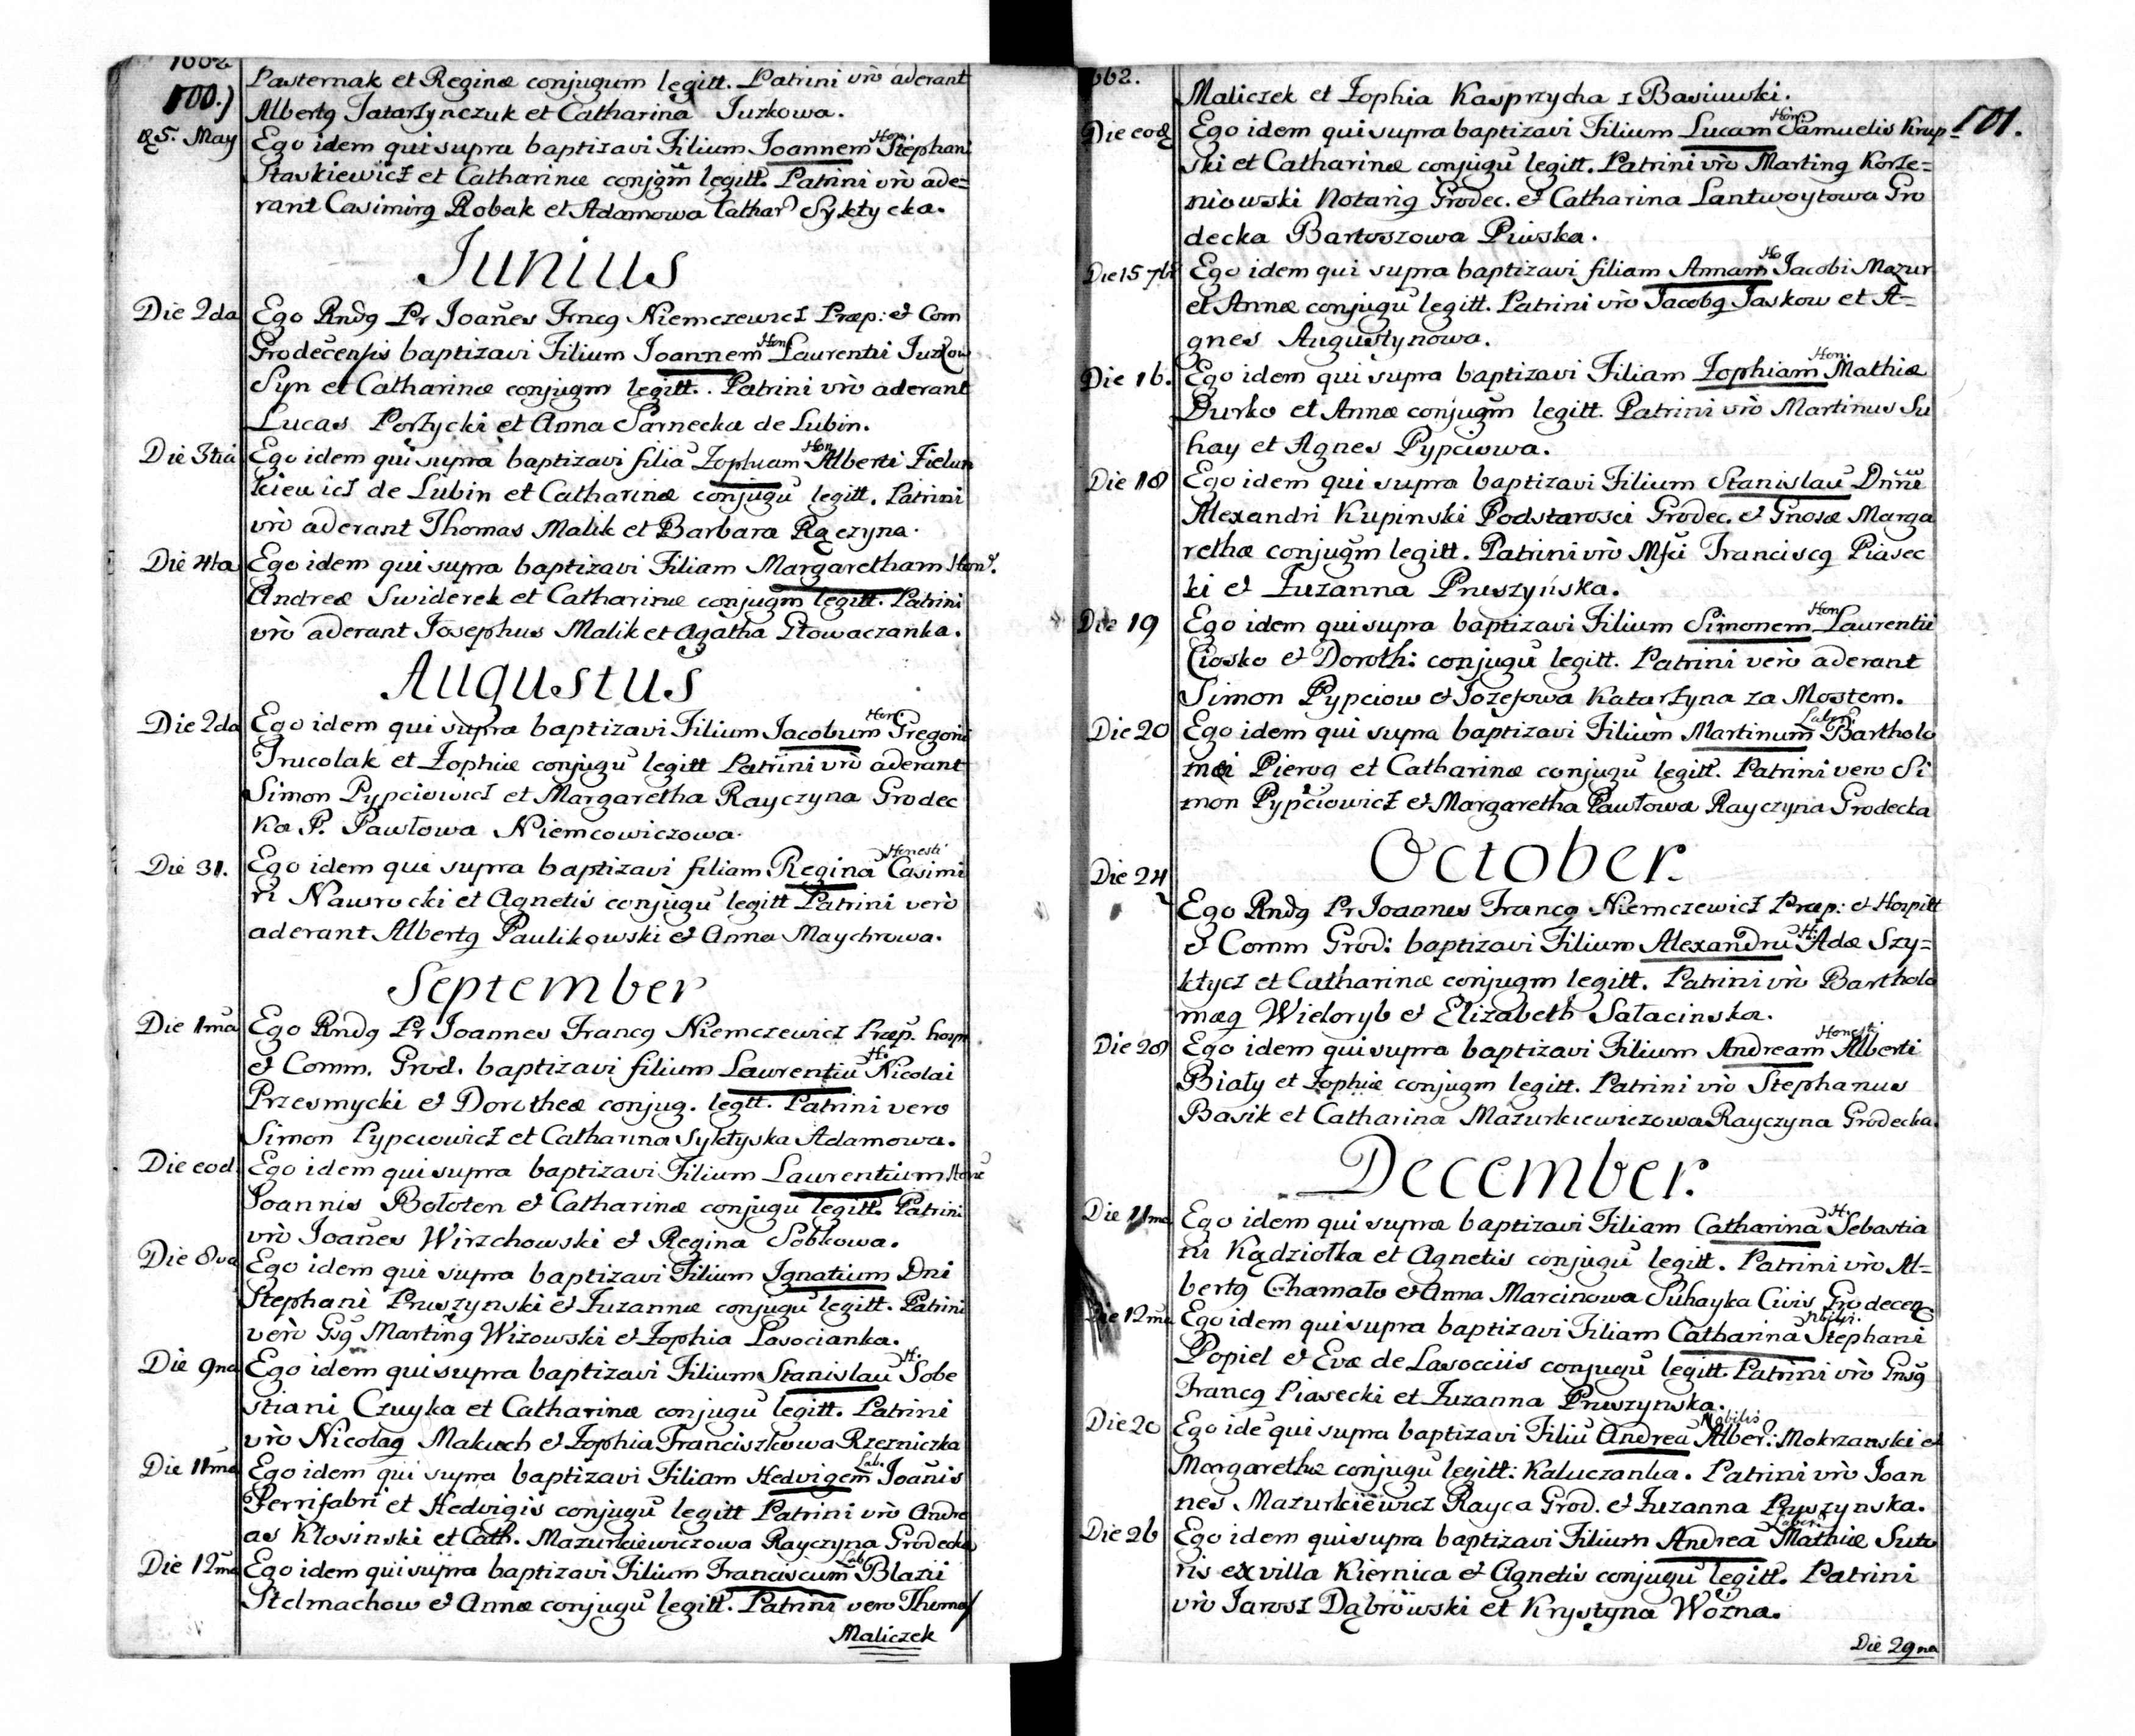 1662
100.)
Pasternak et Reginæ conjugum legitt. Patrini vrò aderant
Albertq Tatarzynczuk et Catharina Iuzkowa.
25. May Ego idem qui supra baptizavi Filium Ioannem Hon: Stephani
Staskiewicz et Catharinæ conjgm̃ legitt. Patrini vrò ade=
rant Casimirq Robak et Adamowa Cathar Syktycka.
Iunius
Die 2da Ego Rndq Pr Ioañes Frncq Niemczewicz Præp: et Com
Grodecensis baptizavi Filium Ioannem Hon: Laurentii Iuzkow
Syn et Catharinæ conjugm legitt. Patrini vrò aderant
Lucas Porzycki et Anna Sarnecka de Lubin.
Die 3tia Ego idem qui supra baptizavi filiã Zophiam Hon Alberti Zielun
kiewicz de Lubin et Catharinæ conjugũ legitt. Patrini
vrò aderant Thomas Malik et Barbara Rączyna.
Die 4ta Ego idem qui supra baptizavi Filiam Margaretham Hon:
Andreæ Swiderek et Catharinæ conjugm legitt. Patrini
vrò aderant Iosephus Malik et Agatha Głowaczanka.
Augustus
Die 2da Ego idem qui supra baptizavi Filium Iacobum Hon: Gregorii
Trucolak et Zophiæ conjugũ legitt Patrini vrò aderant
Simon Pypciowicz et Margaretha Rayczyna Grodec
ka P. Pawłowa Niemcowiczowa.
Die 31. Ego idem qui supra baptizavi filiam Regina Honesti Casimi
ri Nawrocki et Agnetis conjugũ legitt Patrini verò
aderant Albertq Paulikowski et Anna Maychrowa.
September
Die 1ma Ego Rndq Pr Ioannes Francq Niemczewicz Præp. hosp
et Comm. Grod. baptizavi filium Laurentiũ H: Nicolai
Przesmycki et Dorotheæ conjug. legtt. Patrini vero
Simon Pypciowicz et Catharina Syktyska Adamowa.
Die eod. Ego idem qui supra baptizavi Filium Laurentium Hon:
Ioannis Bołoten et Catharinæ conjugũ legitt. Patrini
vrò Ioañes Wirzchowski et Regina Sobkowa.
Die 8va Ego idem qui supra baptizavi Filium Ignatium Dni
Stephani Pruszynski et Zuzannæ conjugũ legitt. Patrini
verò Gsq Martinq Wizowski et Zophia Lasocianka.
Die 9na Ego idem qui supra baptizavi Filium Stanislaũ H. Sobe
stiani Czuyka et Catharinæ conjugũ legitt. Patrini
vrò Nicolaq Makuch et Zophia Franciszkowa Rzezniczka
Die 11ma Ego idem qui supra baptizavi Filiam Hedvigem Lab. Ioañis
Ferrifabri et Hedvigis conjugũ legitt Patrini vrò Andre
as Kłosinski et Cath. Mazurkiewiczowa Rayczyna Grodecka
Die 12ma Ego idem qui supra baptizavi Filium Franciscum Lab. Blazii
Stelmachow et Annæ conjugũ legitt. Patrini vero Thomas
Maliczek
662.
101.
Maliczek et Zophia Kasprzycha z Basiuwski.
Die eod Ego idem qui supra baptizavi Filium Lucam Hon: Samuelis Krup=
ski et Catharinæ conjugũ legitt. Patrini vrò Martinq Korze=
niowski Notariq Grodec. et Catharina Lantwoytowa Gro
decka Bartoszowa Piwska.
Die 15 7bris Ego idem qui supra baptizavi filiam Annam Ho Iacobi Mazur
et Annæ conjugũ legitt. Patrini vrò Iacobq Iaskow et A=
gnes Augustynowa.
Die 16. Ego idem qui supra baptizavi Filiam Zophiam Hon: Mathiæ
Durko et Annæ conjugm̃ legitt. Patrini vrò Martinus Su
hay et Agnes Pypciowa.
Die 18 Ego idem qui supra baptizavi Filium Stanislaũ Dnni
Alexandri Kupinski Podstarosci Grodec. et Gnosæ Marga
rethæ conjugm̃ legitt. Patrini vrò Mfci Franciscq Piasec
ki et Zuzanna Pruszyńska.
Die 19 Ego idem qui supra baptizavi Filium Simonem Hon Laurentii
Ciosko et Doroth: conjugũ legitt. Patrini verò aderant
Simon Pypciow et Iozefowa Katarzyna za Mostem.
Die 20 Ego idem qui supra baptizavi Filium Martinum Labor. Bartholo
mæi Pierog et Catharinæ conjugũ legitt. Patrini vero Si
mon Pypciowicz et Margaretha Pawłowa Rayczyna Grodecka
October.
Die 24
Ego Rndq Pr Ioannes Francq Niemczewicz Præp: et Hospitt
et Comm Grod: baptizavi Filium Alexandrũ H: Adæ Szy=
ktycz et Catharinæ conjugm legitt. Patrini vrò Bartholo
mæq Wieloryb et Elizabeth Sałacinska.
Die 28 Ego idem qui supra baptizavi Filium Andream Honesti Alberti
Biały et Zophiæ conjugm legitt. Patrini vrò Stephanus
Basik et Catharina Mazurkiewiczowa Rayczyna Grodecka.
December.
Die 11ma Ego idem qui supra baptizavi Filiam Catharinã H. Sebastia
ni Kądziołka et Agnetis conjugũ legitt. Patrini vrò Al=
bertq Chamało et Anna Marcinowa Suhayka Civis Grodecen
Die 12ma Ego idem qui supra baptizavi Filiam Catharina Nblis. Stephani
Popiel et Evæ de Lasociis conjugũ legitt. Patrini vrò Gnsq
Francq Piasecki et Zuzanna Pruszynska.
Die 20 Ego idẽ qui supra baptizavi Filiũ Andreã Nobilis Alber: Mokrzanski et
Margarethæ conjugũ legitt: Kaluczanka. Patrini vrò Ioan
nes Mazurkiewicz Rayca Grod. et Zuzanna Pruszynska.
Die 26 Ego idem qui supra baptizavi Filium Andreã Labor. Mathiæ Suto
ris ex villa Kiernica et Agnetis conjugũ legitt. Patrini
vrò Iarosz Dąbrówski et Krystyna Wozna.
Die 29na